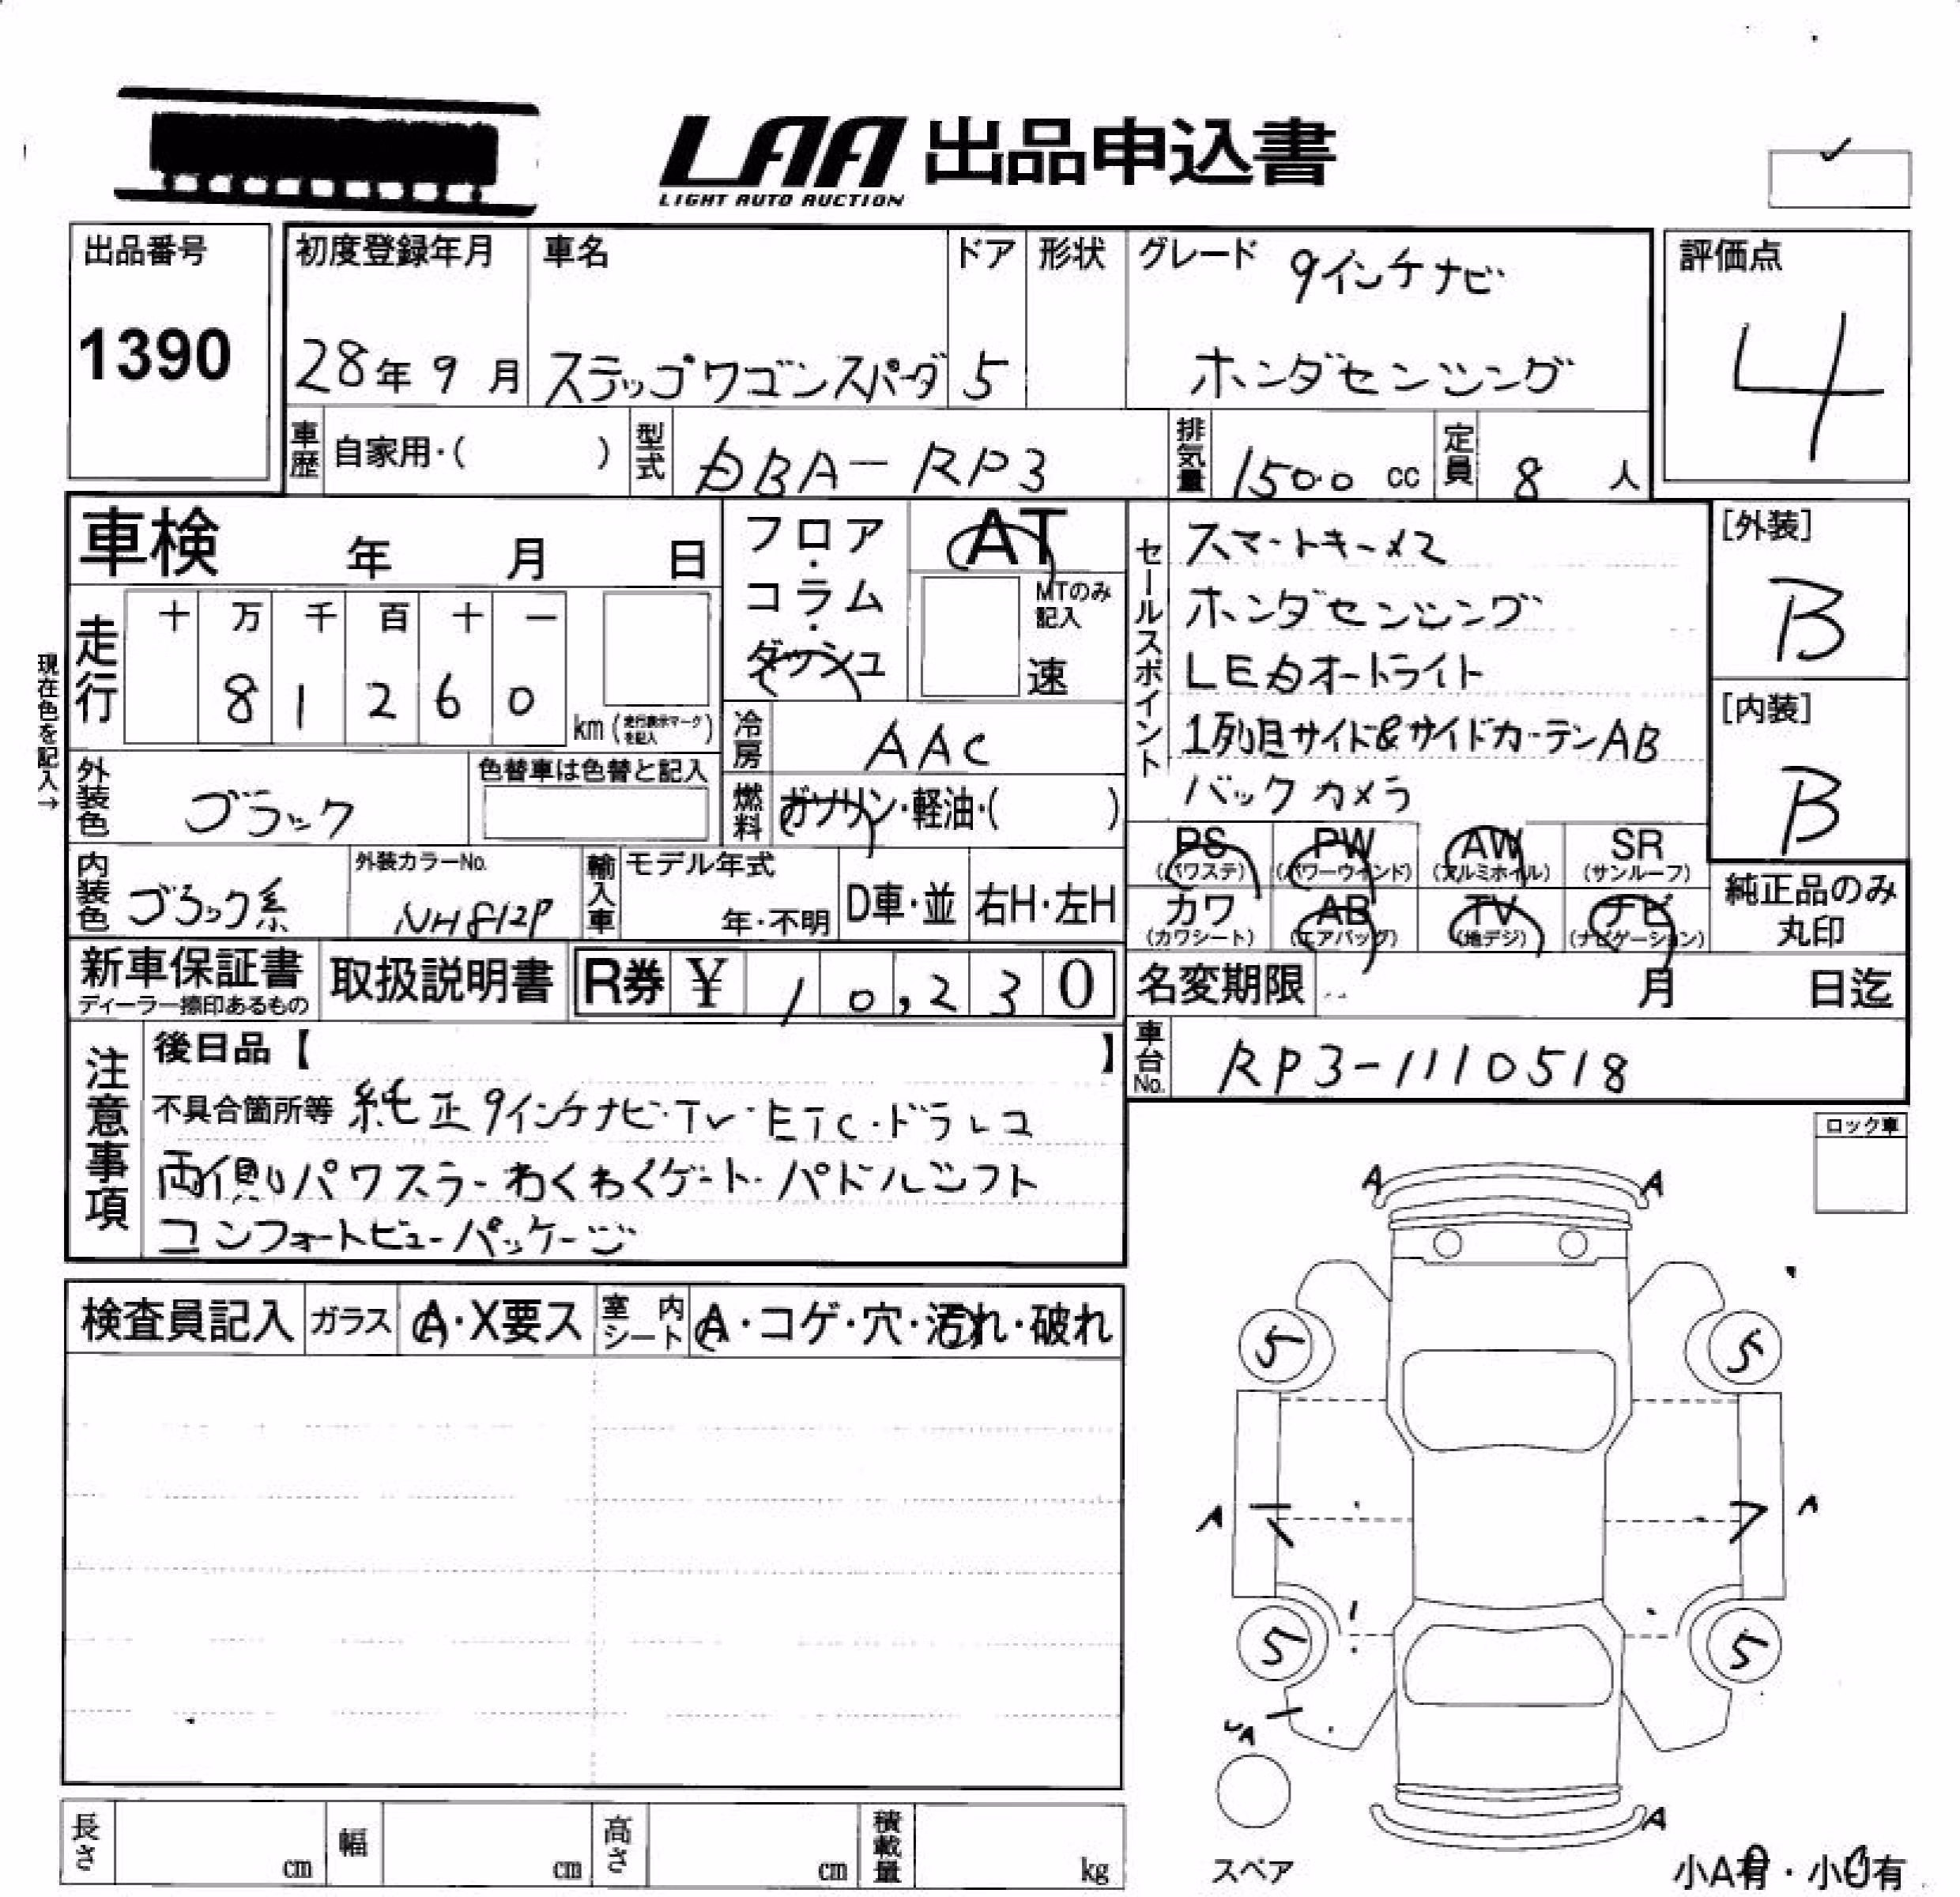 LAA 出品申込書
LIGHT AUTO AUCTION
出品番号
1390
初度登録年月
28年9月
車名
ステップワゴンスパーダ
ドア
5
形状
グレード 9インチナビ
ホンダセンシング
評価点
4
車歴 自家用・( )
型式 DBA-RP3
排気量 1500 cc
定員 8 人
車検 年 月 日
フロア・コラム・ダッシュ
AT
MTのみ記入
速
セールスポイント
スマートキー×2
ホンダセンシング
LEDオートライト
1列目サイド&サイドカーテンAB
バックカメラ
[外装]
B
[内装]
B
現在色を記入→
走行
十 万 千 百 十 一
8 1 2 6 0
km (走行表示マークを記入)
冷房 AAC
外装色 ブラック
色替車は色替と記入
燃料 ガソリン・軽油・( )
PS (パワステ)
PW (パワーウィンド)
AW (アルミホイル)
SR (サンルーフ)
カワ (カワシート)
AB (エアバッグ)
TV (地デジ)
ナビ (ナビゲーション)
純正品のみ
丸印
内装色 ブラック系
外装カラーNo.
NH812P
輸入車
モデル年式
年・不明
D車・並
右H・左H
新車保証書
ディーラー捺印あるもの
取扱説明書
R券 ¥ 10,230
名変期限 月 日迄
車台No. RP3-1110518
注意事項
後日品【 】
不具合箇所等 純正9インチナビ・TV・ETC・ドラレコ
両側パワスラ・わくわくゲート・パドルシフト
コンフォートビューパッケージ
ロック車
検査員記入
ガラス A・X要ス
室内シート A・コゲ・穴・汚れ・破れ
A A
5 5
A A
5 5
UA
A
スペア
小A有・小U有
長さ cm
幅 cm
高さ cm
積載量 kg